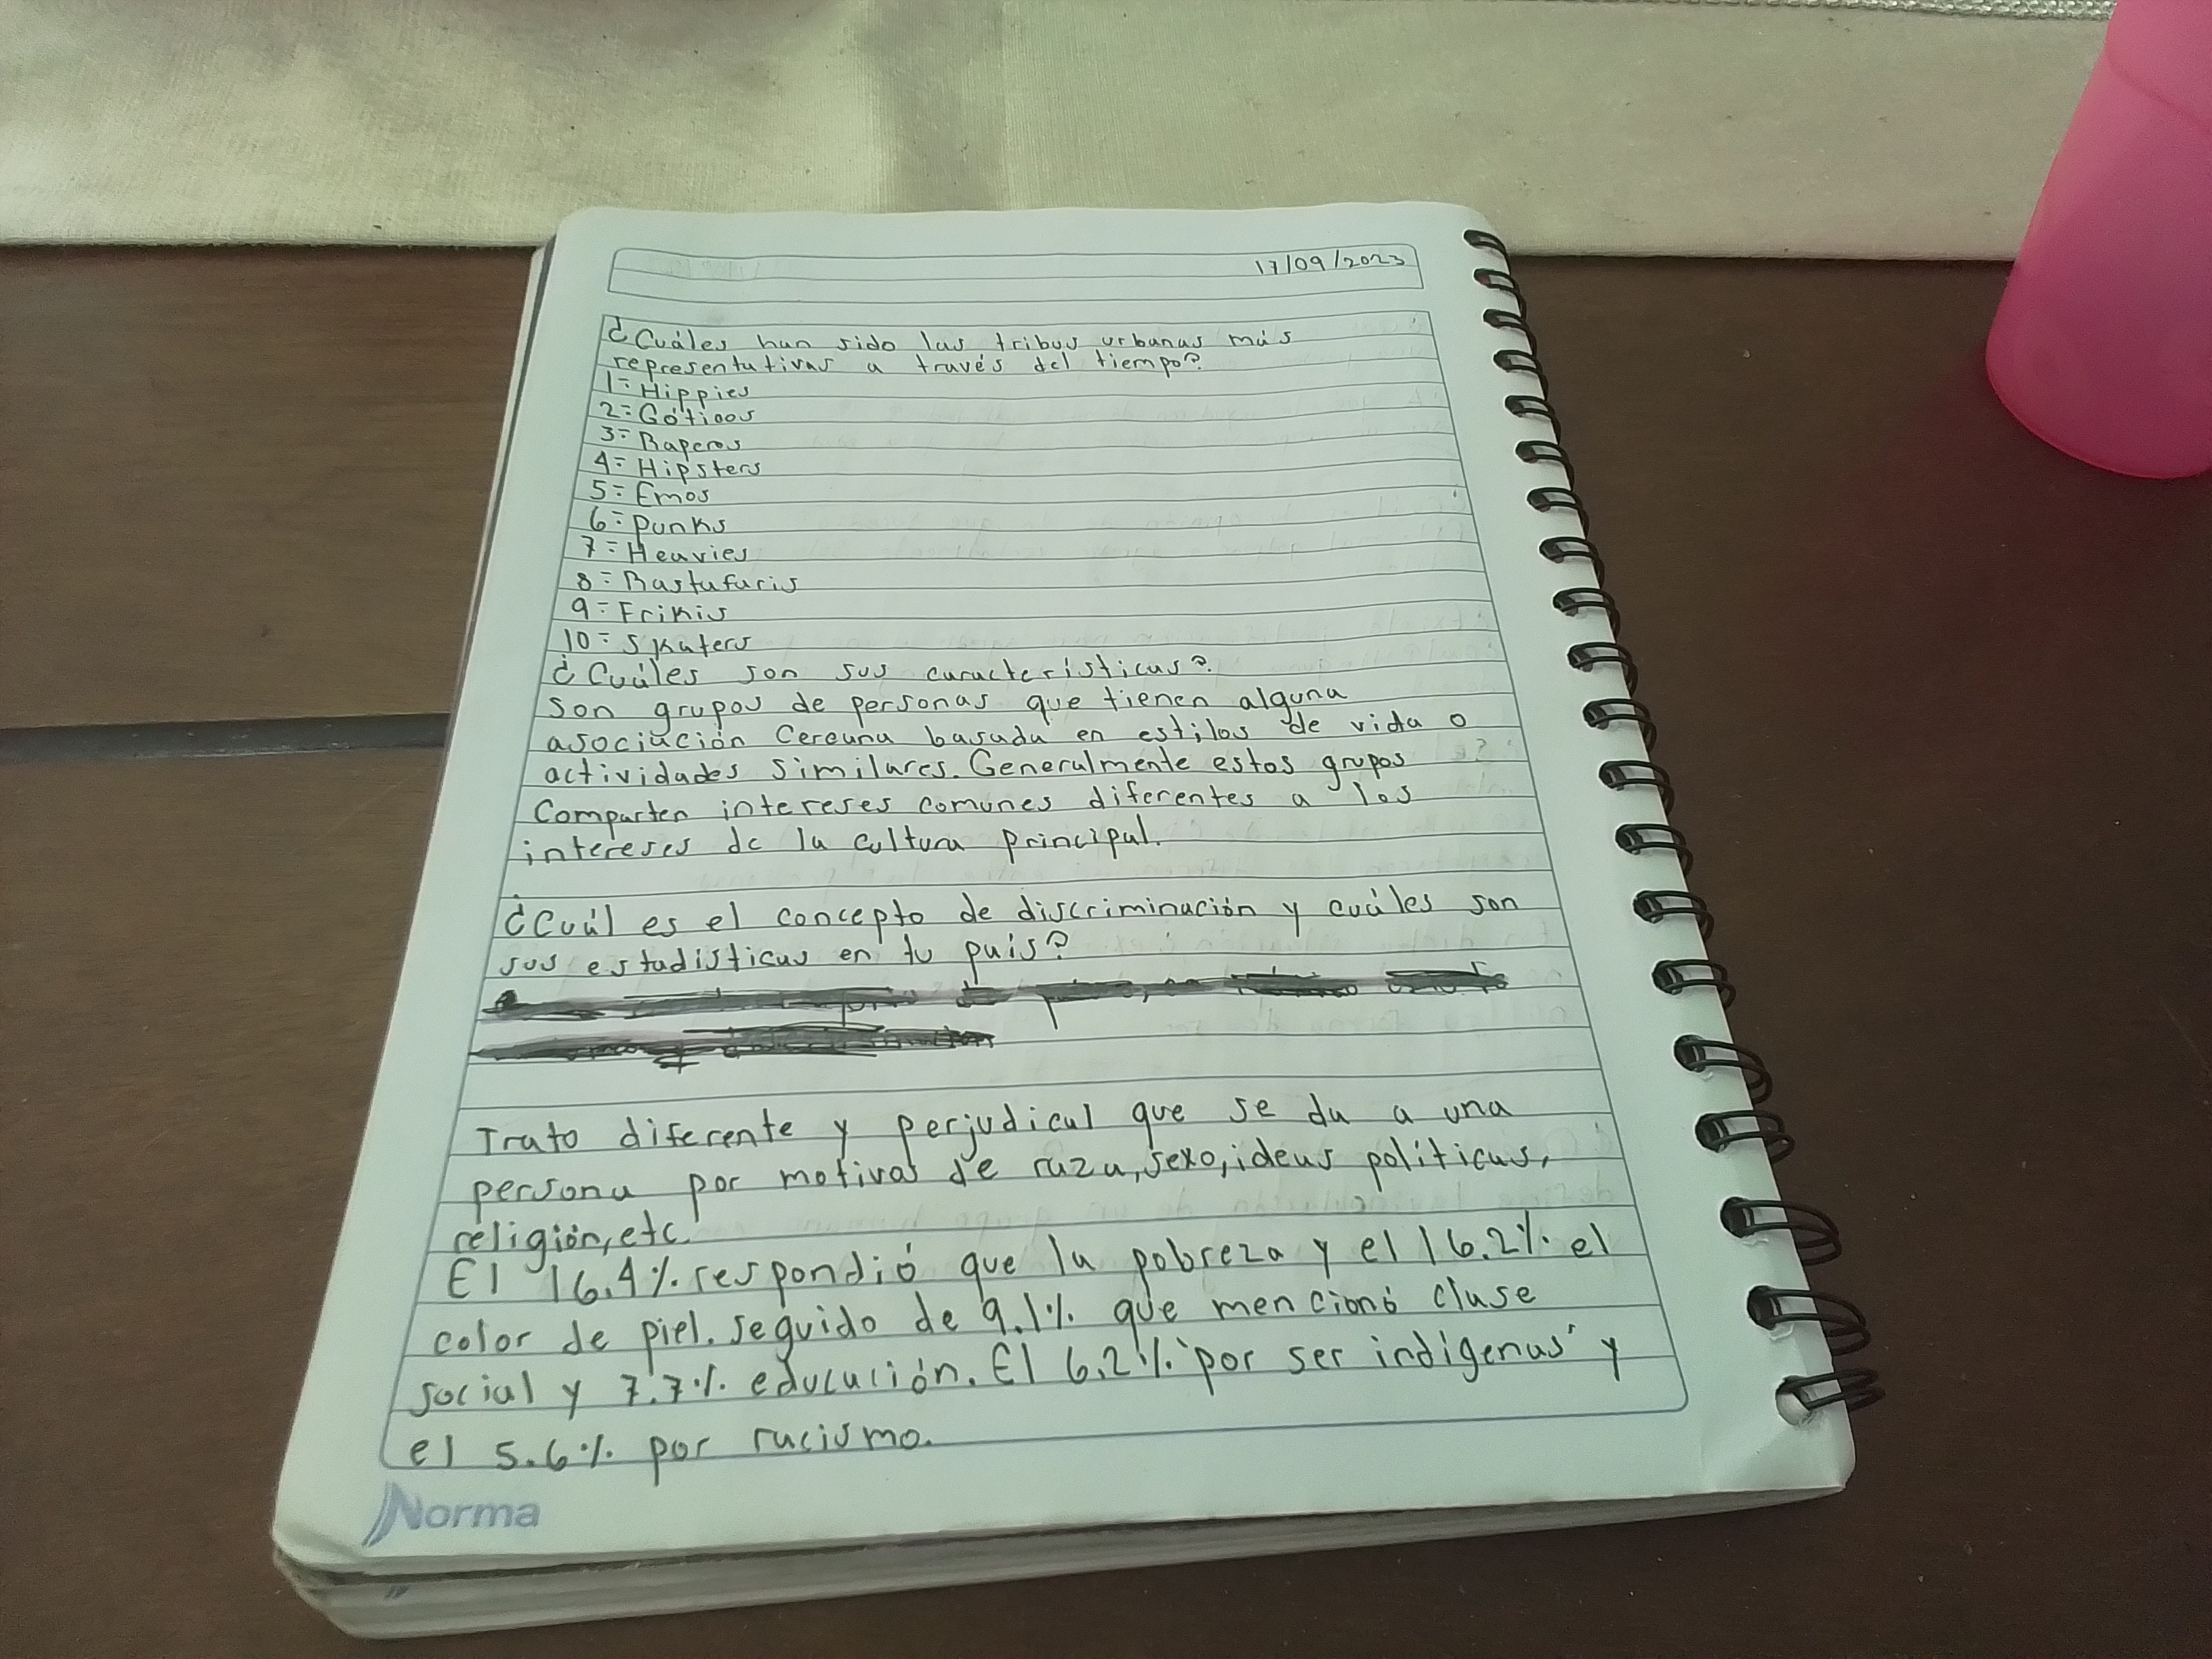 17/09/2023
¿Cuáles han sido las tribus urbanas más
representativas a través del tiempo?
1- Hippies
2- Góticos
3- Raperos
4- Hipsters
5- Emos
6- punks
7- Heavies
8- Rastafaris
9- Frikis
10- Skaters
¿Cuáles son sus características?
Son grupos de personas que tienen alguna
asociación Cercana basada en estilos de vida o
actividades similares. Generalmente estos grupos
Comparten intereses comunes diferentes a los
intereses de la cultura principal.
¿Cuál es el concepto de discriminación y cuáles son
sus estadísticas en tu país?
Trato diferente y perjudical que se da a una
persona por motivos de raza, sexo, ideas políticas,
religión, etc.
El 16.4% respondió que la pobreza y el 16.2% el
color de piel. seguido de 9.1% que mencionó clase
social y 7.7% educación. El 6.2% "por ser indígenas" y
el 5.6% por racismo.
Norma